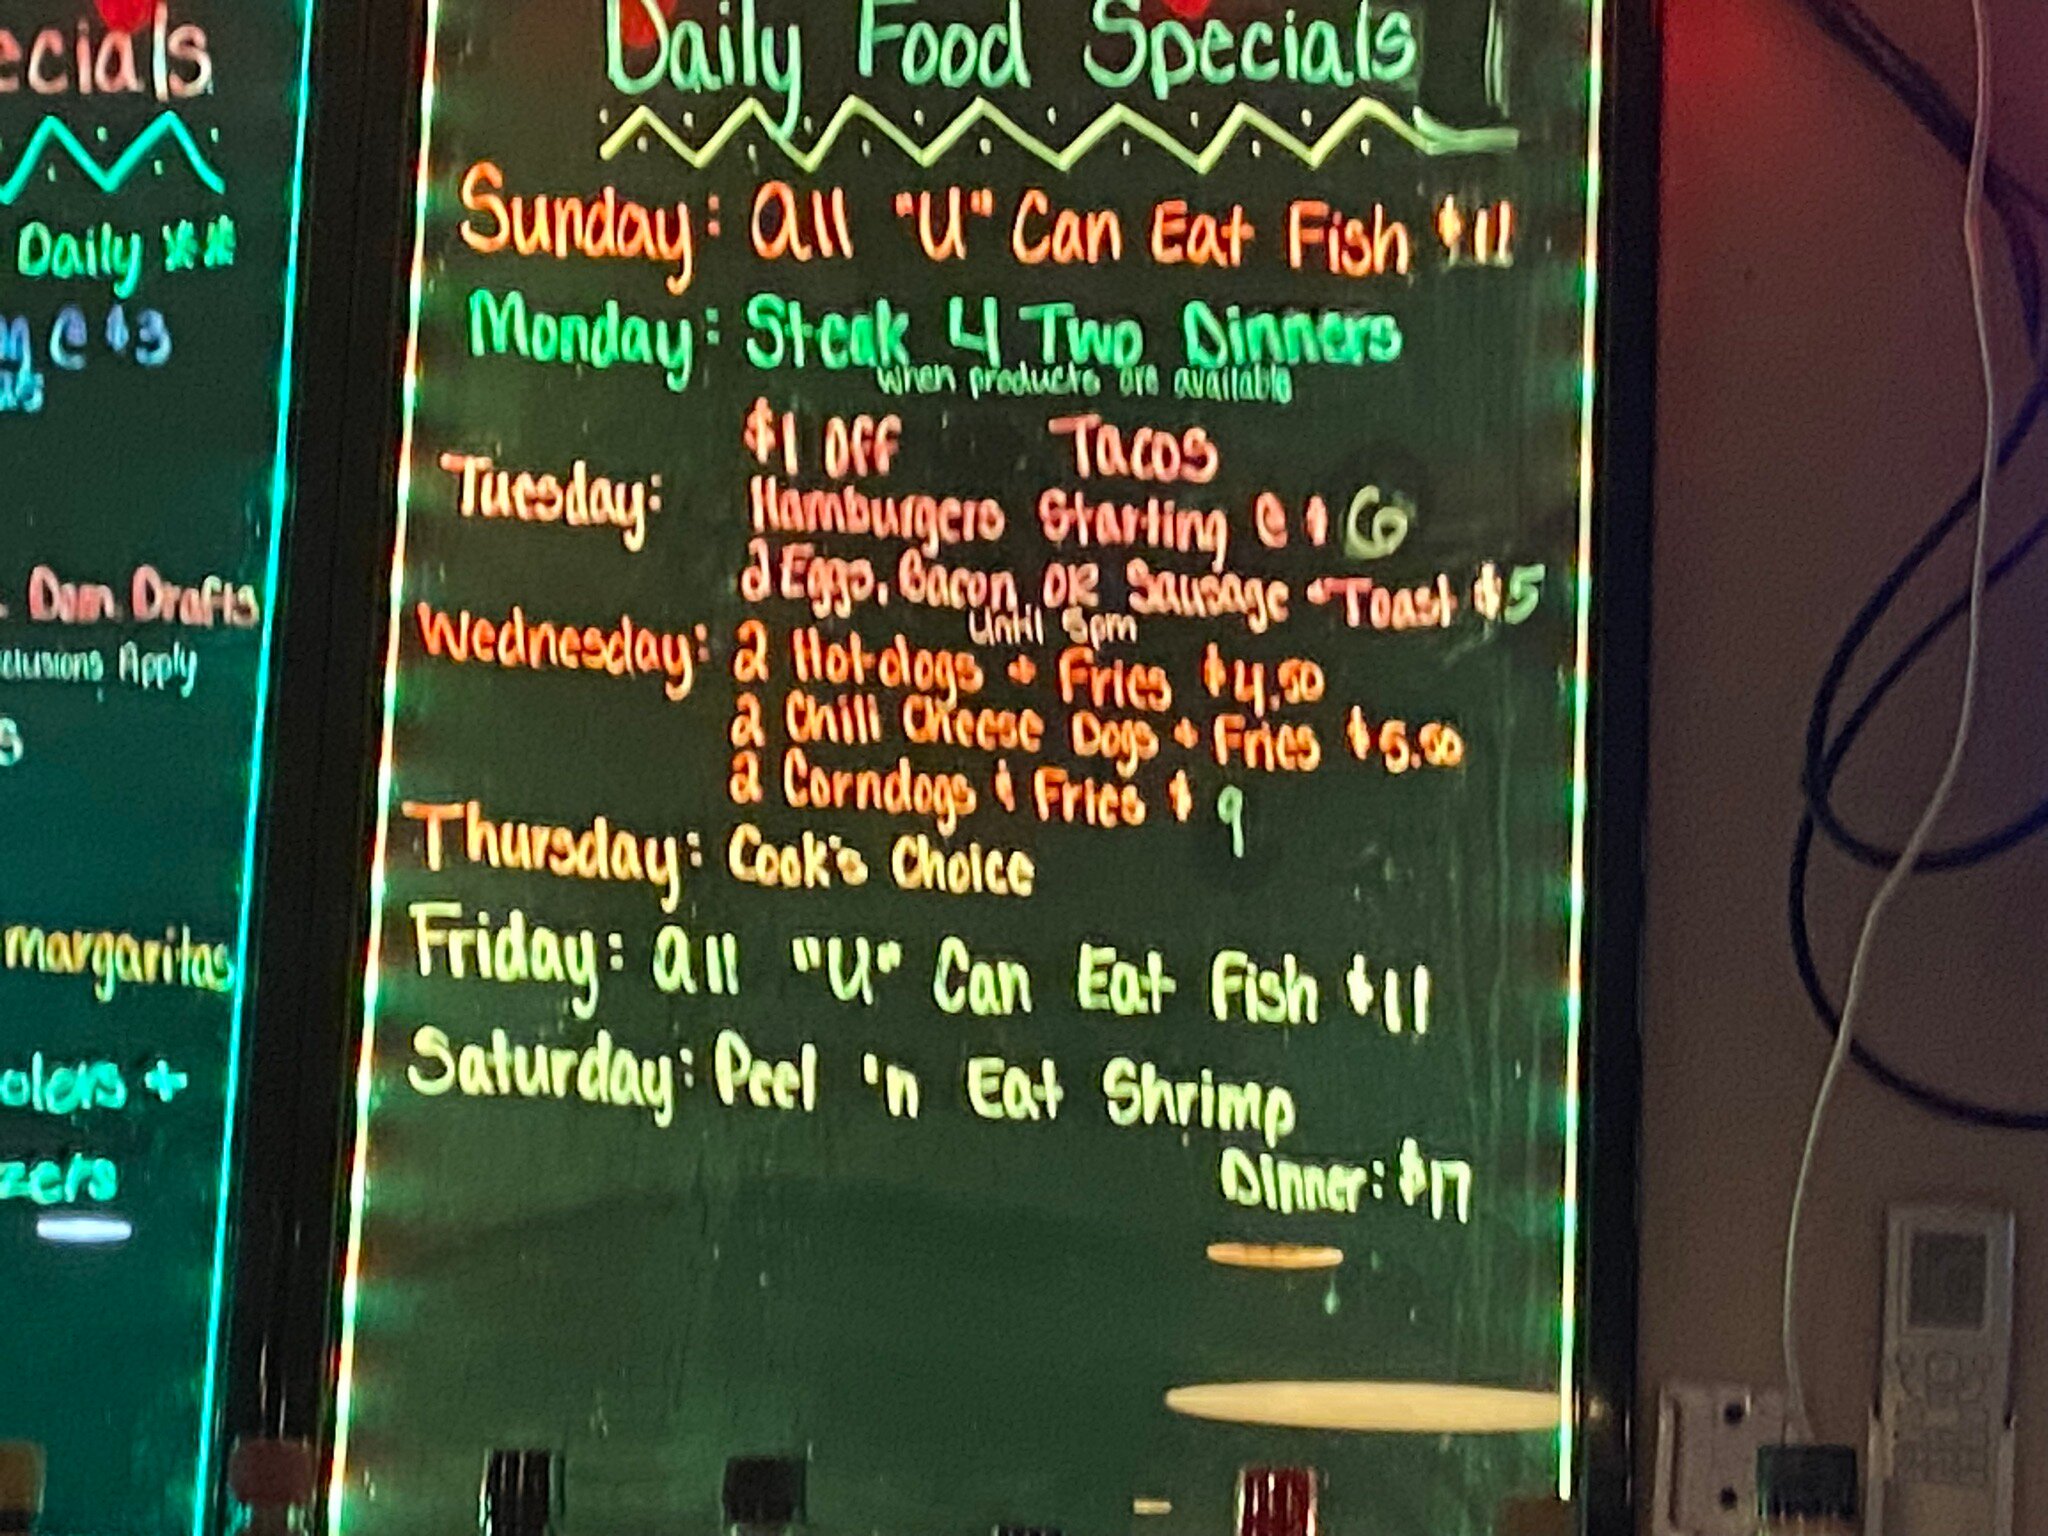 ecials
Daily **
@ $3
Dom. Drafts
clusions Apply
margaritas
+
Daily Food Specials
Sunday: All "U" Can Eat Fish $11
Monday: Steak 4 Two Dinners
when products are available
Tuesday: $1 Off Tacos
Hamburgers Starting @ $6
2 Eggs, Bacon OR Sausage + Toast $5
until 5pm
Wednesday: 2 Hotdogs + Fries $4.50
2 Chili Cheese Dogs + Fries $5.50
2 Corndogs & Fries $9
Thursday: Cook's Choice
Friday: All "U" Can Eat Fish $11
Saturday: Peel 'n Eat Shrimp
Dinner: $17